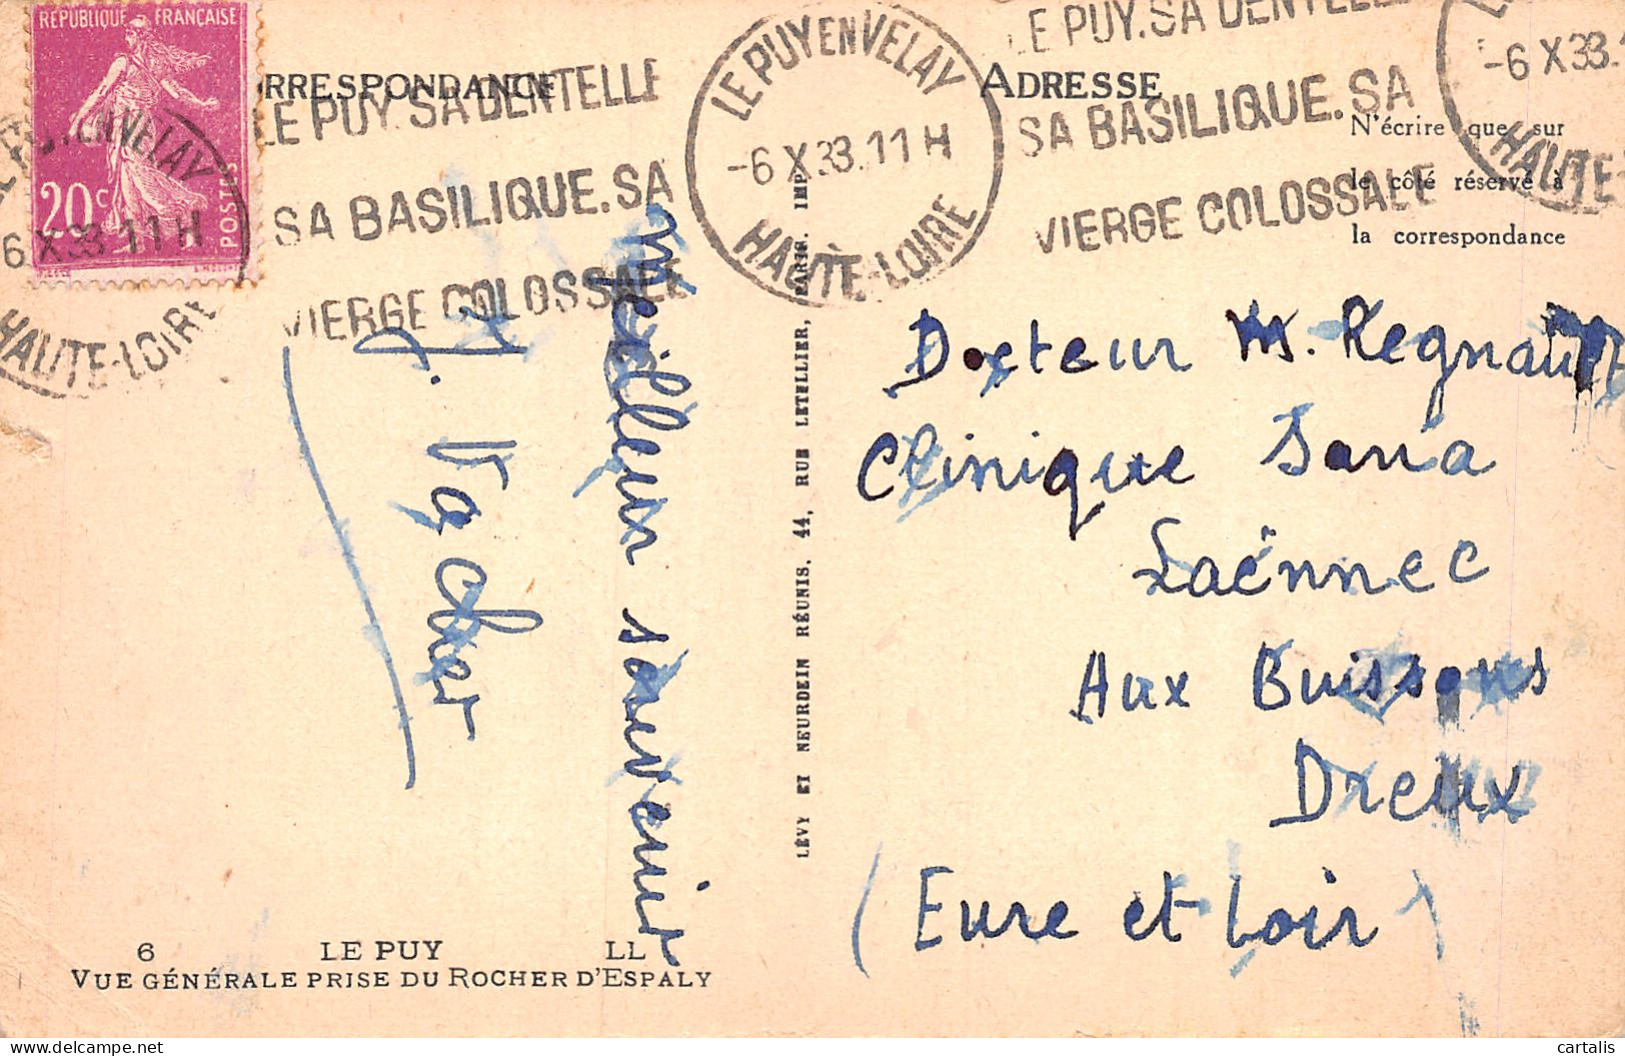 RÉPUBLIQUE FRANÇAISE
20c
POSTES
LE PUY EN VELAY
6 X 33 11 H
HAUTE-LOIRE
CORRESPONDANCE
LE PUY. SA DENTELLE
SA BASILIQUE. SA
VIERGE COLOSSALE
LE PUY EN VELAY
-6 X 33. 11 H
HAUTE-LOIRE
LE PUY. SA DENTELLE
SA BASILIQUE. SA
VIERGE COLOSSALE
-6 X 33.
HAUTE-
ADRESSE
N'écrire que sur
le côté réservé à
la correspondance
Meilleur souvenir
J. Vacher
LÉVY ET NEURDEIN RÉUNIS, 44, RUE LETELLIER, PARIS. IMP.
Docteur M. Regnault
Clinique Sana
Laënnec
Aux Buissons
Dreux
(Eure et Loir)
6 LE PUY LL
VUE GÉNÉRALE PRISE DU ROCHER D'ESPALY
cartalis